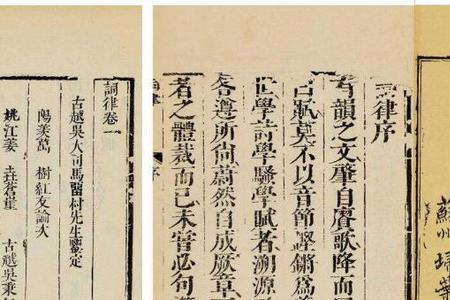 蘇州埽葉
詞律序
有韻之文肇自賡歌降而
古賦莫不以音節鏗鏘為
世學詩學騷學賦者溯源
各遵所尚蔚然自成厥章
者之體裁而已未嘗必句
序
詞律卷一
古越吳大司馬留村先生鑒定
陽羨萬 樹紅友論次
姚江姜 垚蒼崖 古越吳秉